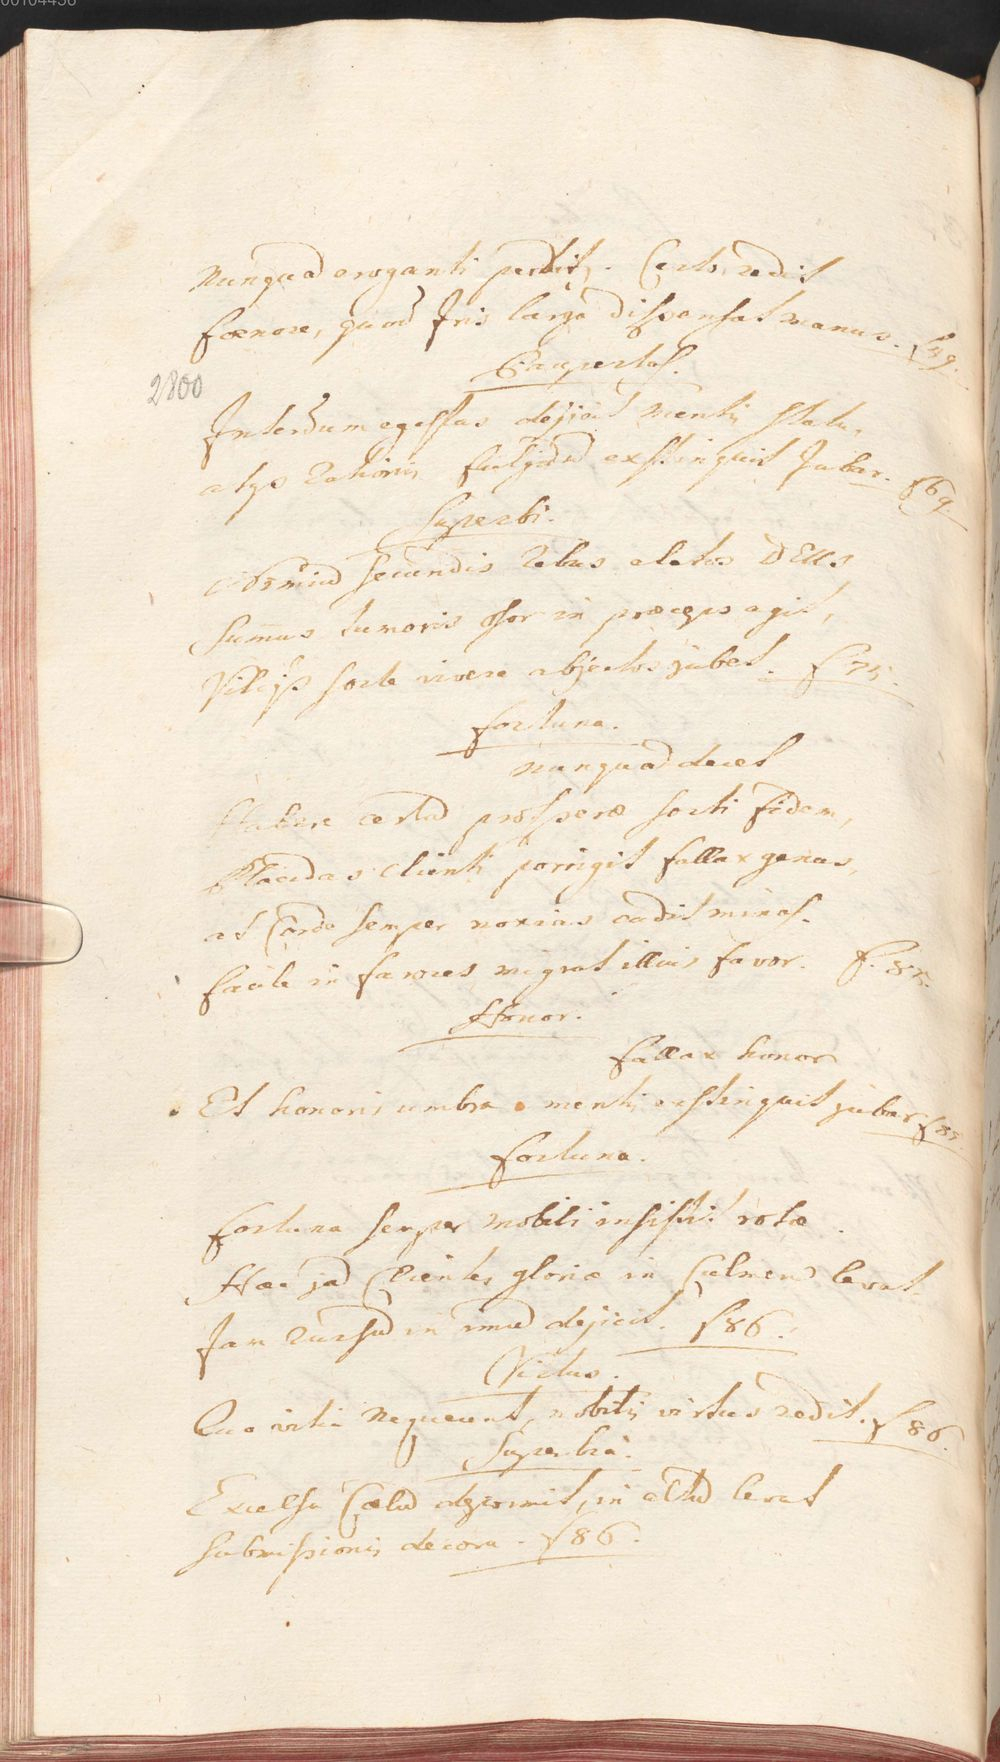 00104436
Nunquã eroganti perdit,. Certo redit
Fœnore, quod Iris larga dispensat manus. f 59.
2800
Paupertas.
Interdum egestas dejicit menti statu,
atq̃ rationis fulgidũ exstinguit Jubar. f 69.
Superbi.
secundis rebus elatos DEUs
Summus tumoris osor in præceps agit,
sorte vivere abjectos jubet. f 75.
Fortuna.
Nunquã decet
Habere certã prosperæ sorti fidem,
Placidas clienti porrigit fallax genas,
at corde semper noxias cudit minas.
facile in favor. f. 85.
Honor.
Fallax honor
Et honoris umbra mentis exstinguit jubar f 85.
Fortuna.
Fortuna semper mobili insistit rotæ.
Hæc jã Clientes gloriæ in Culmen levat.
Jam rursũ in imũ dejicit. f 86.
Virtus.
Quo vitia nequeunt, nobilis virtus redit. f 86.
Superbia.
Excelsa Cœlũ deprimit, in altũ levat
submissionis decora. f 86.